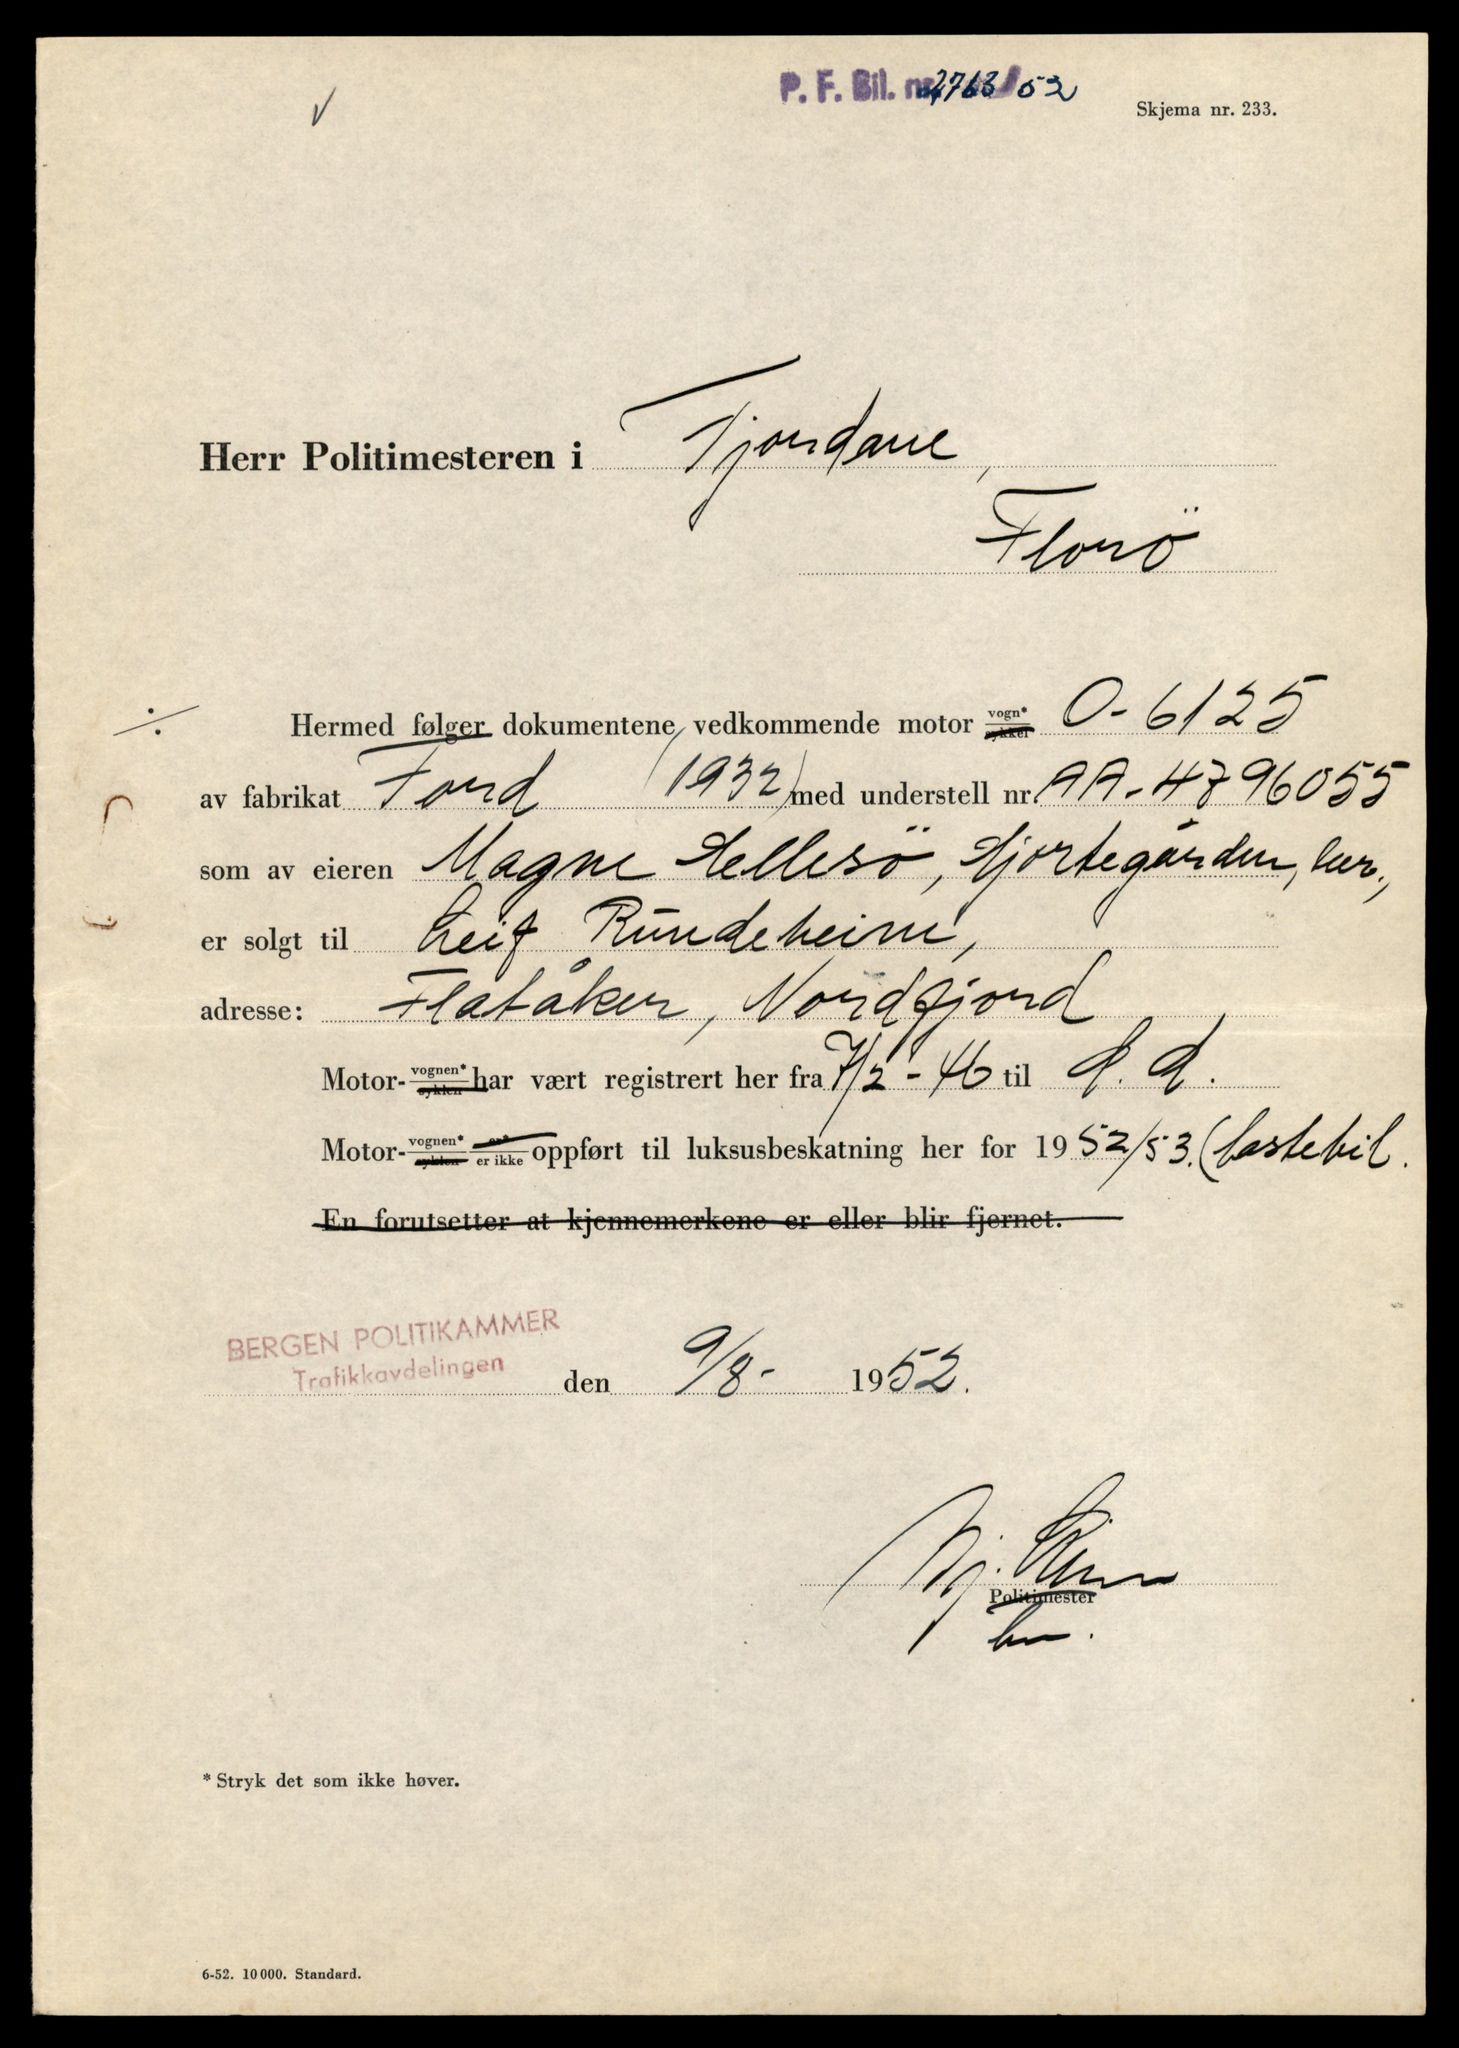 P. F. Bil. nr. 2763/52
Skjema nr. 233.
Herr Politimesteren i Fjordane,
Florö
Hermed følger dokumentene vedkommende motor vogn* sykkel O-6125
av fabrikat Ford (1932) med understell nr. AA-4796055
som av eieren Magne Hellesö, Hjortegården, her.,
er solgt til Leif Rundeheim,
adresse: Flatåker, Nordfjord
Motor- vognen* syklen har vært registrert her fra 7/2-46 til d.d.
Motor- vognen* syklen er* er ikke oppført til luksusbeskatning her for 1952/53. (lastebil.
En forutsetter at kjennemerkene er eller blir fjernet.
BERGEN POLITIKAMMER
Trafikkavdelingen
den 9/8- 1952.
Politimester
* Stryk det som ikke høver.
6-52. 10 000. Standard.